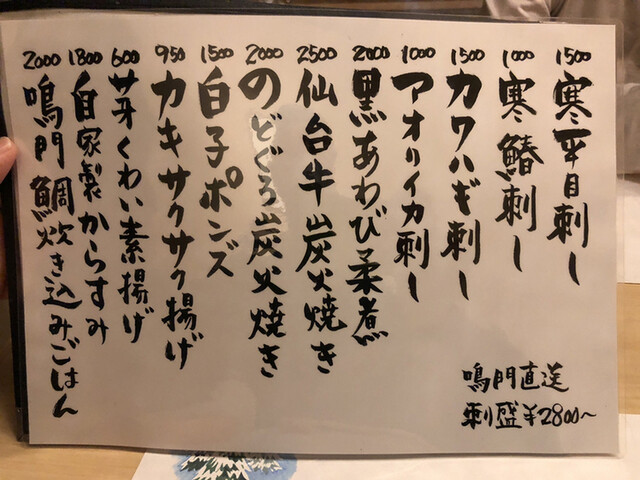 1500 寒平目刺し
1000 寒鰆刺し
1500 カワハギ刺し
1000 アオリイカ刺し
2000 黒あわび柔煮
2500 仙台牛炭火焼き
2000 のどぐろ炭火焼き
1500 白子ポンズ
950 カキサクサク揚げ
600 芽くわい素揚げ
1800 自家製からすみ
2000 鳴門鯛炊き込みごはん
鳴門直送
刺盛¥2800〜